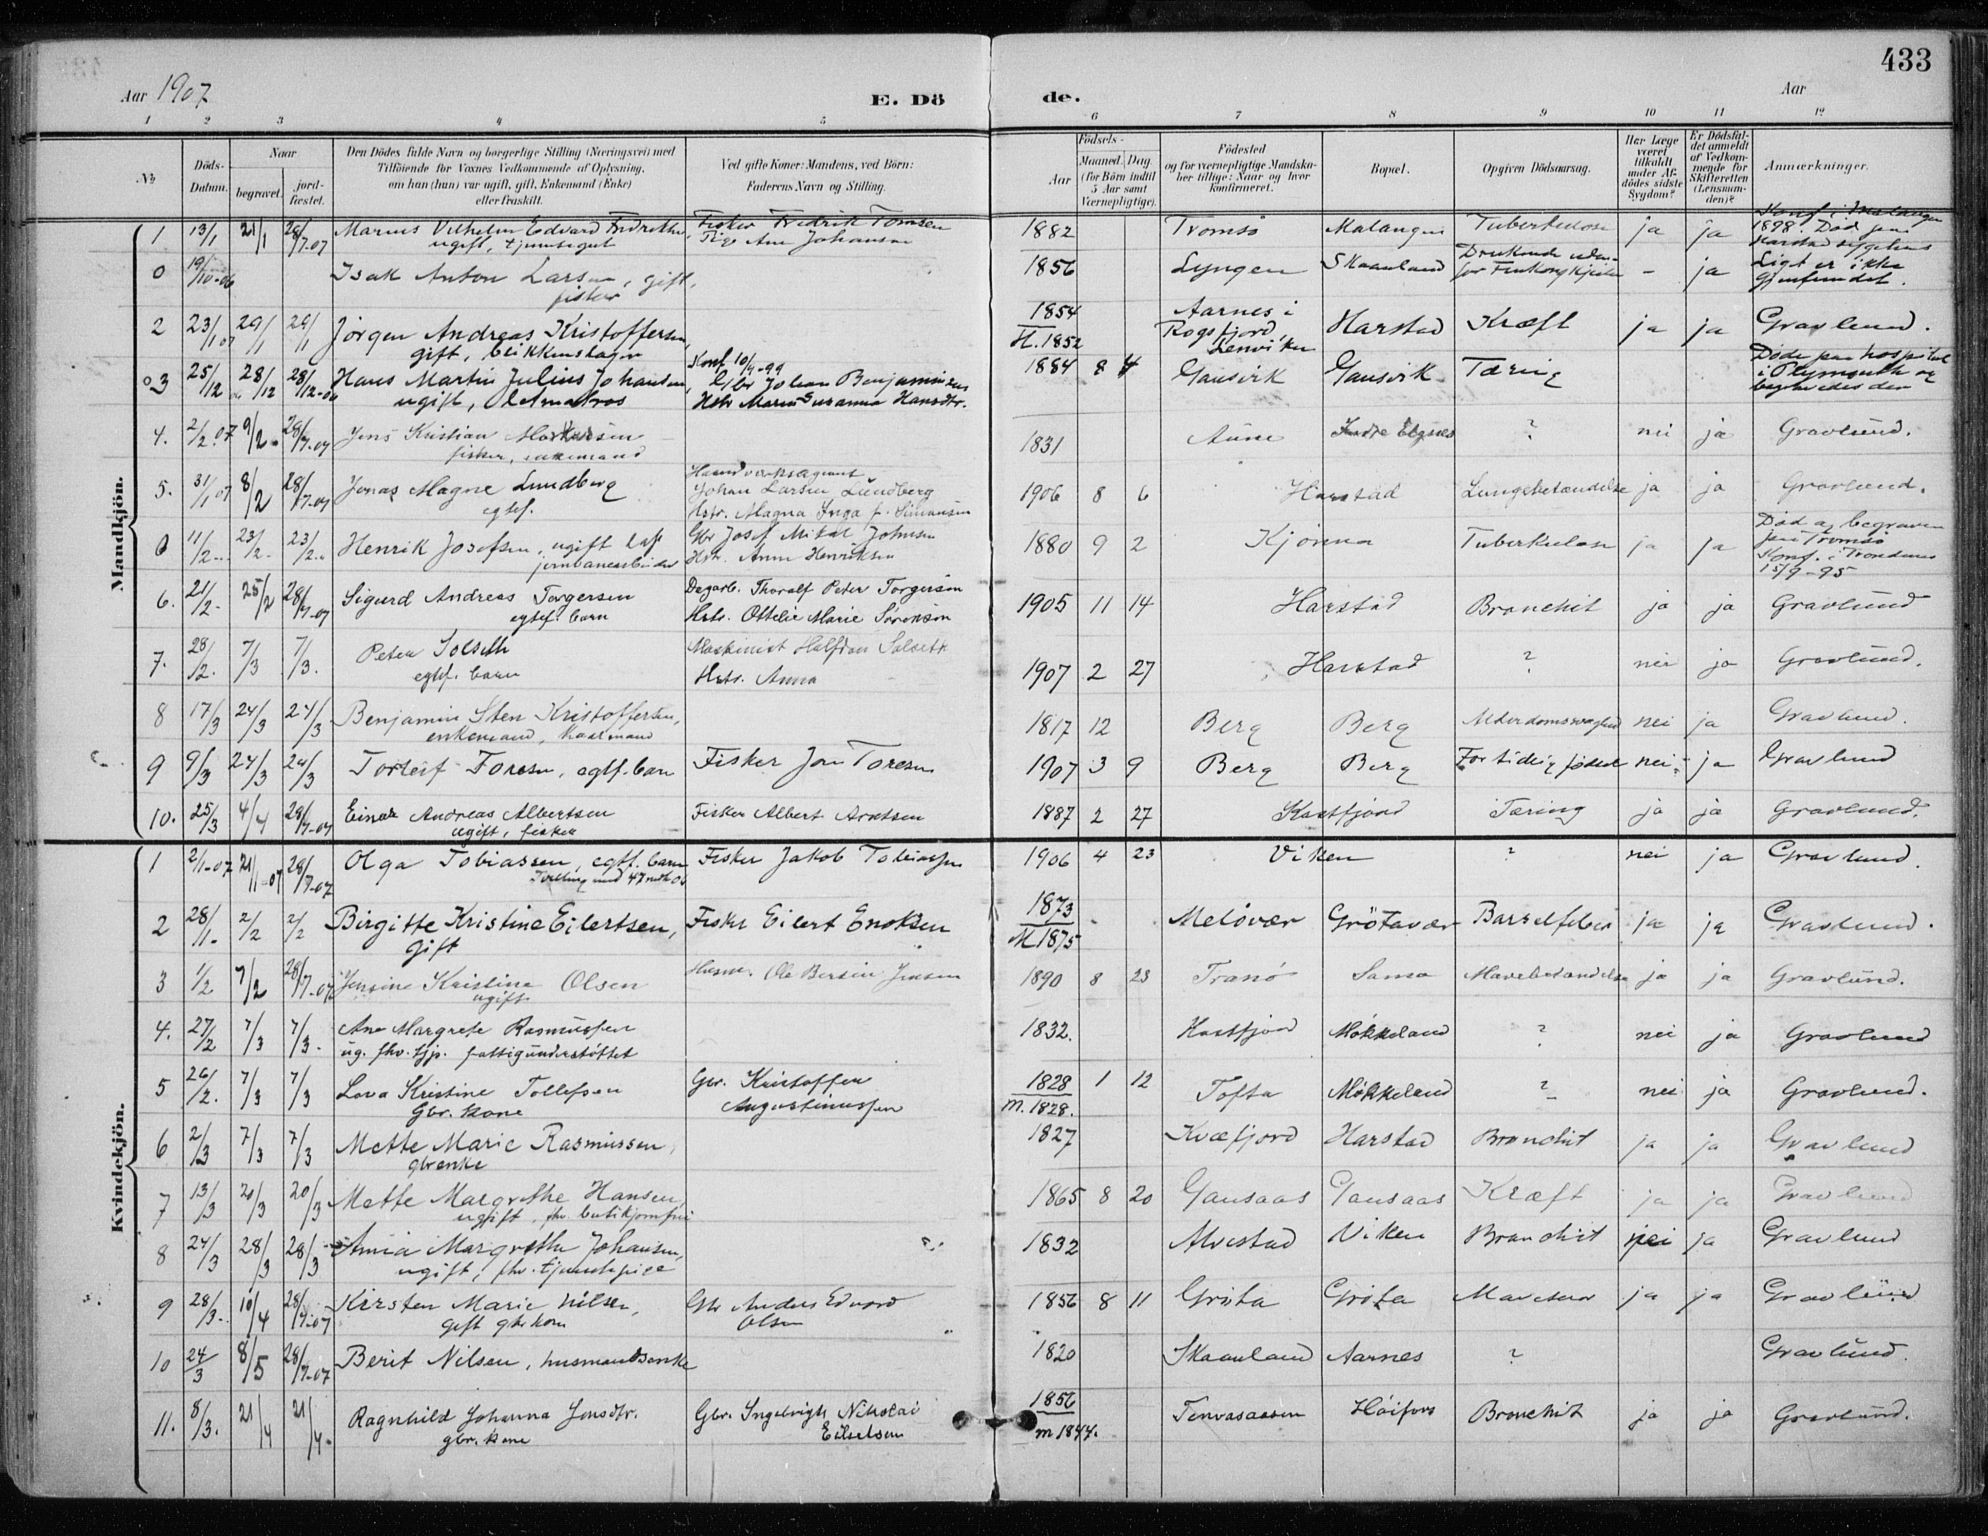 433
Aar 1907
E. Dö
de.
Aar
1 2 3 4 5 6 7 8 9 10 11 12
No
Döds-
Datum.
Naar
begravet.
jord-
fæstet.
Den Dödes fulde Navn og borgerlige Stilling (Næringsvei) med
Tilföiende for Voxnes Vedkommende af Oplysning,
om han (hun) var ugift, gift, Enkemand (Enke)
eller fraskilt.
Ved gifte Koner: Mandens, ved Börn:
Faderens Navn og Stilling.
Födsels-
Aar
Maaned. Dag
(for Börn indtil
5 Aar samt
Værnepligtige).
Födested
og for værnepligtige Mandska-
ber tillige: Naar og hvor
Konfirmeret.
Bopæl.
Opgiven Dödsaarsag.
Har Læge
været
tilkaldt
under Af-
dödes sidste
Sygdom?
Er Dödsfal-
det anmeldt
af Vedkom-
mende for
Skifteretten
(Lensman-
den)?
Anmærkninger.
Mandkjön.
1 13/1 21/1 28/7-07 Marius Vilhelm Edvard
ugift,
Fisker Fredrik Tomsen
Pige Ane Johansen
1882 Tromsø Malangen Tuberkulose ja ja
Konf. i Malangen
1898. Død paa
Harstad sygehus
0 19/10-06 Isak Anton Larsen, gift,
fisker
1856 Lyngen Skaanland ja
Liget er ikke
gjenfundet.
2 23/1 07 29/1 29/1 Jörgen Andreas Kristoffersen,
gift, blikkenslager
1854
H. 1852
Aarnes i
Rogsfjord
Lenviken
Harstad Kræft ja ja Gravlund.
3 25/12 28/12 28/12-06 Hans Martin Julius Johansen,
ugift,
Konf 10/9-99
Gbr Johan Benjaminsen
Hstr Maren Susanna Hansdtr.
1884 8 4 Gausvik Gausvik Tæring
Døde paa hospital
i Plymouth og
begravedes der
4. 2/2 07 9/2 28/7-07 Jens Kristian
fisker, enkemand
1831 Aune Indre Elgsnes ? nei ja Gravlund.
5. 31/1 07 8/2 28/7-07 Jonas Magne Lundberg
egtef.
Haandverksagent
Johan Larsen Lundberg
Hstr. Magna Inga f. Simonsen
1906 8 6 Harstad Lungebetændelse ja ja Gravlund.
0 11/2 23/2 23/2 Henrik Josefsen, ugift
jernbanearbeider
Gbr Josef Mikal Johnsen
Hstr. Anne Henriksen
1880 9 2 Kjönna Tuberkulose ja ja
Død og begraven
paa Tromsø
Konf. i Trondenes
15/9-95
6. 21/2 25/2 28/7-07 Sigurd Andreas Torgersen
egtef. barn
Dagarb. Thoralf Peter Torgersen
Hstr. Ottelie Marie Sørensen
1905 11 14 Harstad Bronchit ja ja Gravlund
7. 28/2 7/3 7/3. Peter Solseth
egtef. barn
Maskinist Halfdan Solseth
Hstr. Anna
1907 2 27 Harstad ? nei ja Gravlund.
8 17/3 24/3 24/3 Benjamin Sten Kristoffersen,
enkemand, kaarmand
1817 12 Berg Berg Alderdomssvaghed nei ja Gravlund.
9 9/3 24/3 24/3 Torleif Toresen, egtf. barn
Fisker Jon Toresen
1907 3 9 Berg Berg For tidlig födsel nei ja Gravlund
10. 25/3 4/4 28/7-07 Einar Andreas Albertsen
ugift, fisker
Fisker Albert Arntsen
1887 2 27 Kastfjord Tæring ja ja Gravlund.
Kvindekjön.
1 2/1-07 21/1-07 28/7-07 Olga Tobiassen, egtf. barn
Tvilling med
Fisker Jakob Tobiassen
1906 4 23 Viken ? nei ja Gravlund.
2 28/1 2/2 2/2 Birgitte Kristine Eilertsen,
gift
Fisker Eilert Enoksen
1873
M 1875
Meløvær Grötavær Barselfeber ja ja Gravlund.
3 1/2 7/2 28/7-07 Jensine Kristine Olsen
ugift
Husm. Ole Bersin Jensen
1890 8 23 Tranö Sama Mavebetændelse ja ja Gravlund.
4. 27/2 7/3 7/3 Ane Margrete Rasmussen
ug. fhv. tjp. fattigunderstöttet
1832. Kastfjord Møkkeland ? nei ja Gravlund
5 26/2. 7/3 7/3 Lova Kristine Tollefsen
Gbr. kone
Gbr. Kristoffer
Augustinussen
1828
m. 1828.
1 12 Tofta Møkkeland ? nei ja Gravlund.
6 2/3 7/3 7/3 Mette Marie Rasmussen,
gbrenke
1827 Kvæfjord Harstad Bronchit ja ja Gravlund
7 13/3 20/3 20/3 Mette Margrethe Hansen,
ugift, fhv. butikjomfru
1865 8 20 Gausaas Gausaas Kræft ja ja Gravlund
8 24/3 28/3 28/3 Anna Margrethe Johansen,
ugift, fhv. tjenestepige
1832 Alvestad Viken Bronchit nei ja Gravlund
9 28/3 10/4 28/7-07 Kirsten Marie Nilsen,
gift gbr kone
Gbr Anders Edvard
Olsen
1856 8 11 Grøta Grøta ja ja Gravlund
10 24/3 8/5 28/7-07 Berit Nilsen, husmandsenke
1820 Skaanland Aarnes ? Gravlund.
11. 8/3. 21/4 21/4 Ragnhild Johanna Jonsdtr.
gbr. kone
Gbr. Ingebrigt Nikolai
1856
m 1844.
Bronchit ja ja Gravlund.